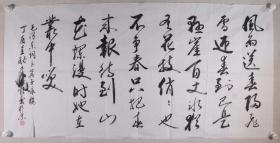 风雨送春归飞
雪迎春到已是
悬崖百丈冰犹
有花枝俏〻也
不争春只把春
来报待到山
花烂漫时她在
丛中笑
毛泽东词卜算子咏梅
丁酉